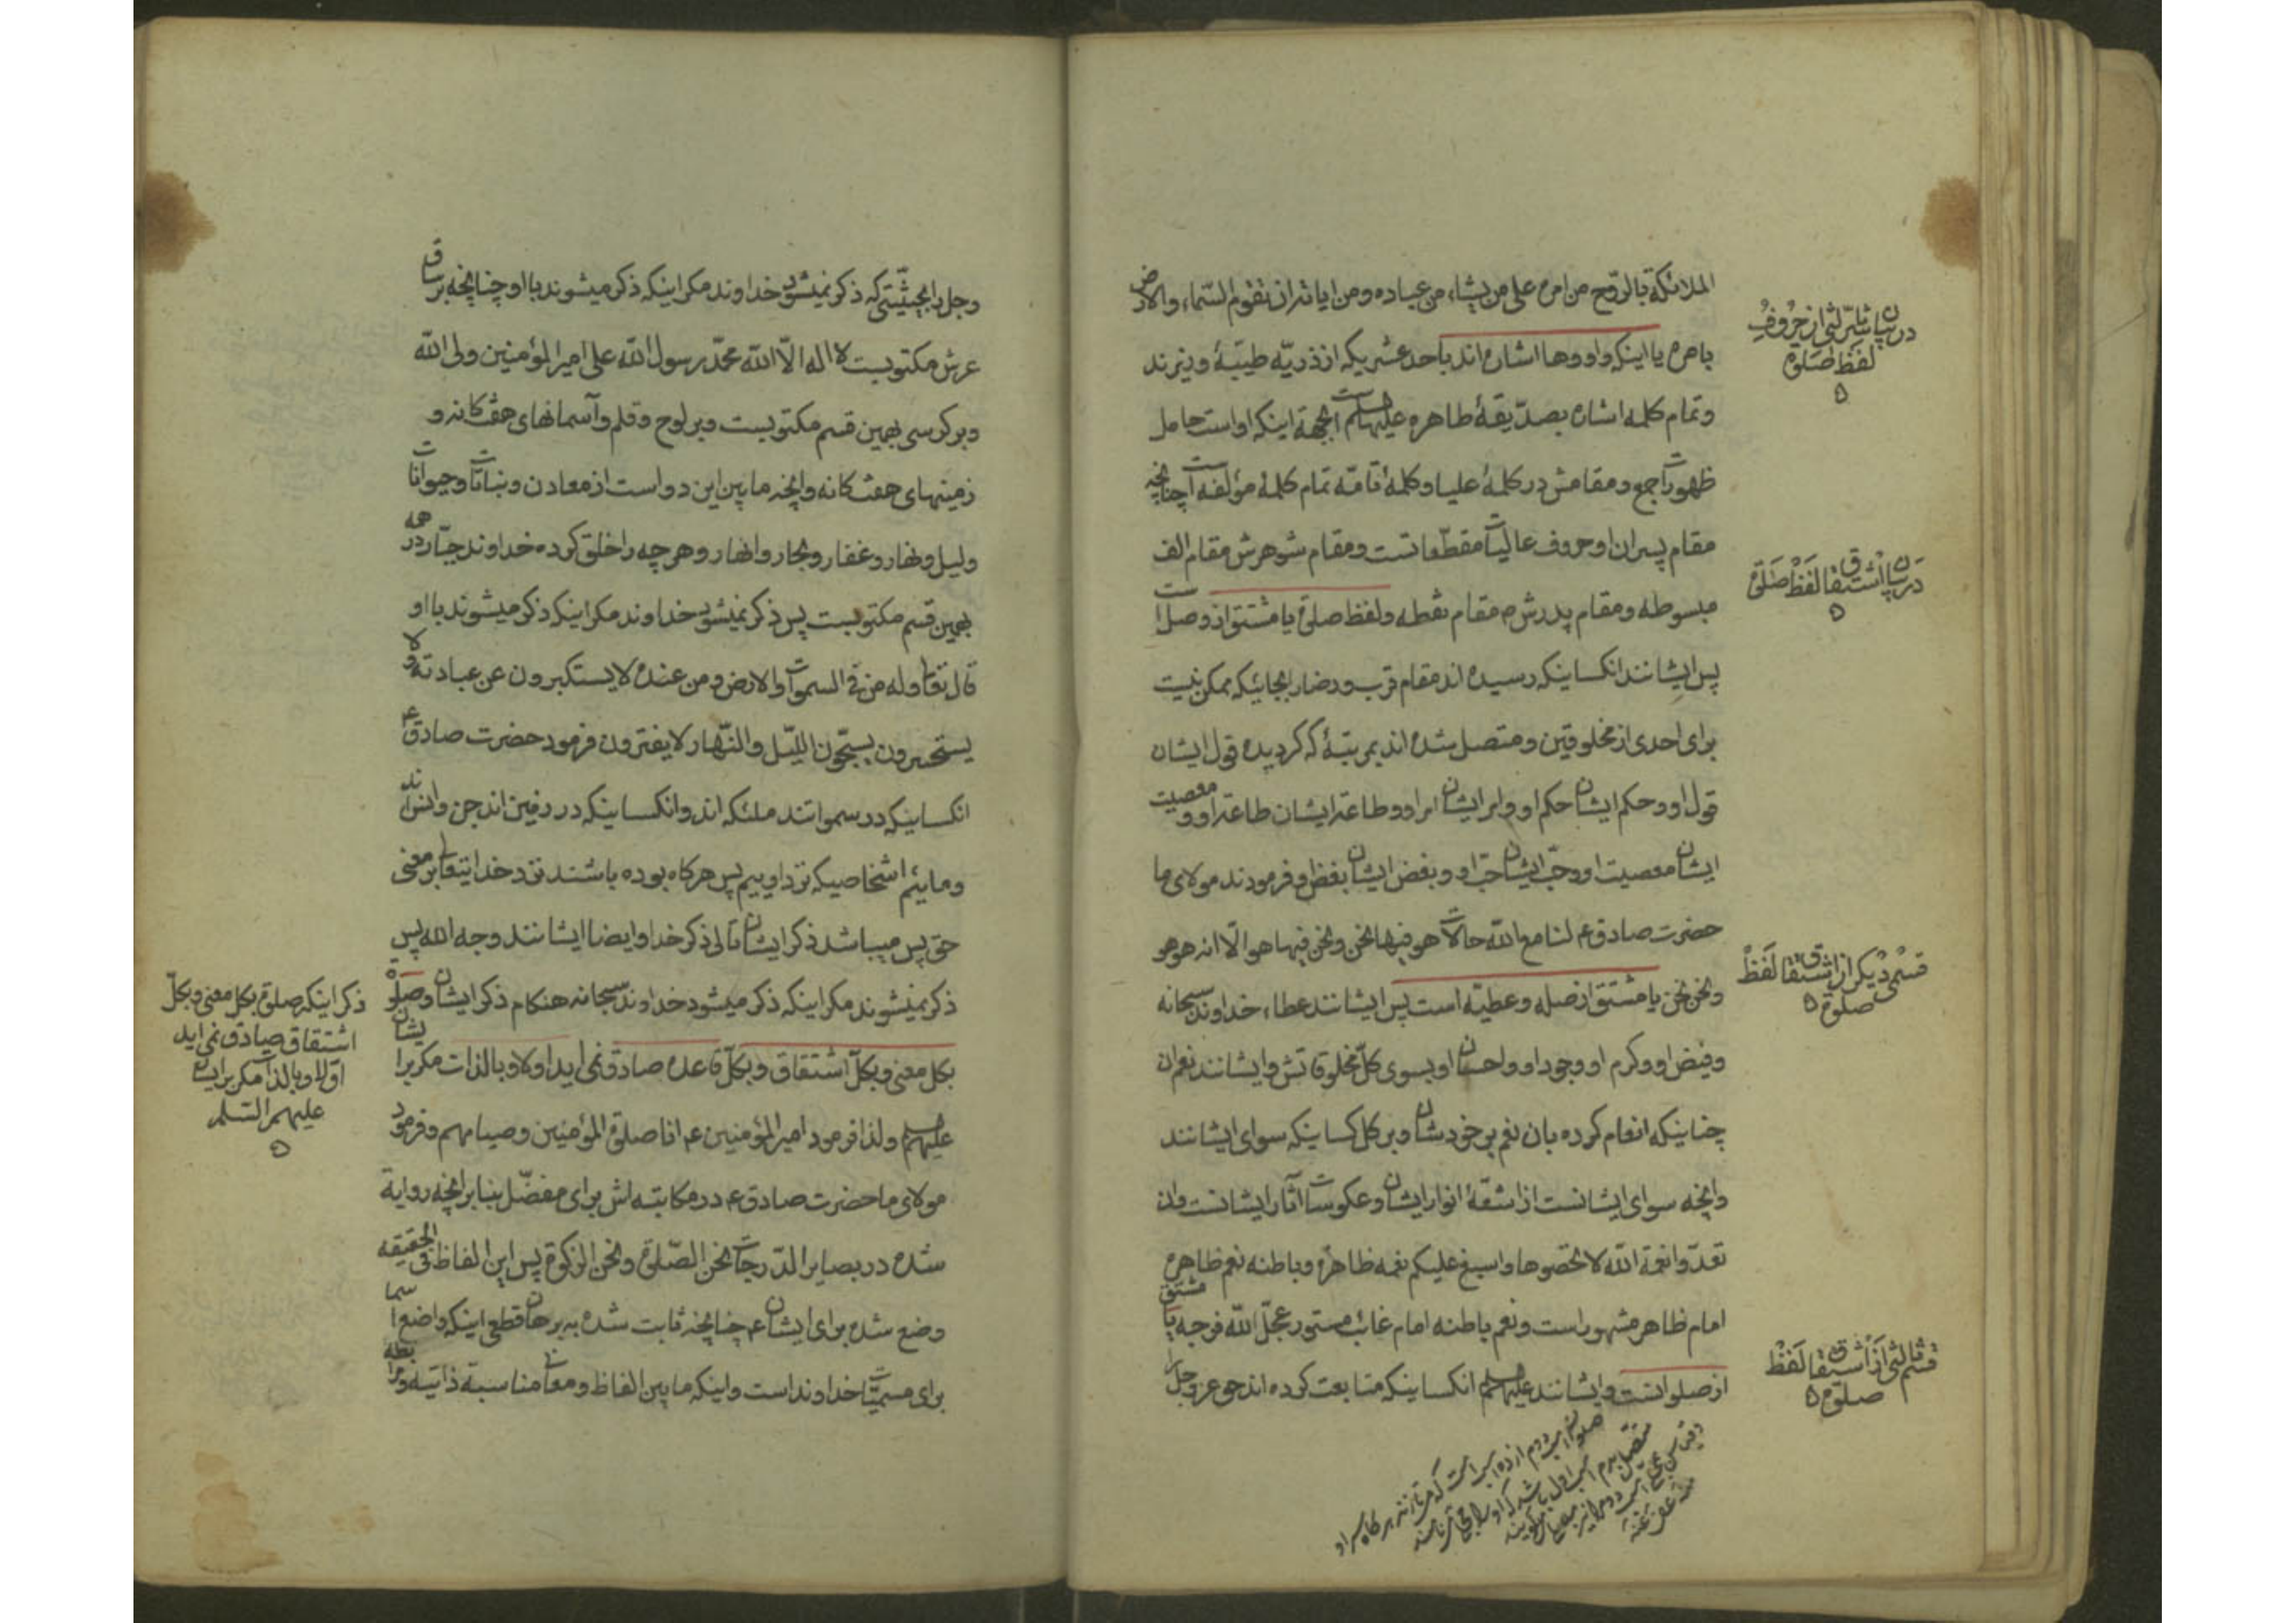 الملائكة بالروح من امره على من يشاء من عباده ومن اياته ان تقوم السماء والارض
بامره يا اينكه واو وها اشاره اند باحد عشريكه از ذريّه طيّبهٔ ونيزند
وتمام كلمه اشاره بصدّيقهٔ طاهره عليها سلم است بجهة اينكه او است حامل
ظهورات اجمع ومقامش در كلمهٔ عليا وكلمهٔ تامّه تمام كلمهٔ مؤلفه است چنانچه
مقام پسران او حروف عاليات مقطّعاتست ومقام شوهرش مقام الف
مبسوطه ومقام پدرش م مقام نقطه ولفظ صلوة يا مشتق از وصل است
پس ايشانند انكسانيكه رسيده اند مقام قرب ورضا بجائيكه ممكن نيست
براى احدى از مخلوقين ومتصل شده اند بمرتبهٔ كه گرديده قول ايشان
قول او وحكم ايشان حكم او وامر ايشان امر او وطاعة ايشان طاعة او ومعصيت
ايشان معصيت او وحبّ ايشان حبّ او وبغض ايشان بغض او فرمودند مولاى ما
حضرت صادق ع لنا مع الله حالات هو فيها نحن ونحن فيها هو الّا انه هو هو
ونحن نحن يا مشتق از صله وعطيّه است پس ايشانند عطاء خداوند سبحانه
وفيض او وكرم او وجود او واحسان او بسوى كلّ مخلوقاتش وايشانند نعم ان
چنانيكه انعام كرده بان نعم بر خودشان وبر كل كسانيكه سواى ايشانند
وانچه سواى ايشانست از اشعّهٔ انوار ايشان وعكوسات اثار ايشانست وان
تعدّوا نعمة الله لا تحصوها واسبغ عليكم نعمه ظاهرة وباطنه نعم ظاهره
امام ظاهر مشهور است ونعم باطنه امام غائب مستور عجّل الله فرجه يا مشتق
از صلوانست وايشانند عليهم سلم انكسانيكه متابعت كرده اند حق عز وجل را
در بيان تاثير ثى از حروف
لفظ صلوة
در بيان اشتقاق لفظ صلوة
قسمى ديگر از اشتقاق لفظ
صلوة
قسم ثالثى از اشتقاق لفظ
صلوة
وجل را بحيثيّتى كه ذكر نميشود خداوند مكر اينكه ذكر ميشوند با او چنانچه بر ساق
عرش مكتوبست لا اله الّا الله محمّد رسول الله على امير المؤمنين ولى الله
وبر كرسى بهمين قسم مكتوبست وبر لوح وقلم وآسمانهاى هفتكانه و
زمينهاى هفتكانه وانچه ما بين اين دو است از معادن ونباتات وحيوانات
وليل ونهار وغفار وبحار وانهار وهر چه را خلق كرده خداوند جبّار در همه
بهمين قسم مكتوبست پس ذكر نميشود خداوند مكر اينكه ذكر ميشوند با او
قال تعالى وله من فى السموات والارض ومن عنده لا يستكبرون عن عبادته ولا
يستحسرون يسبّحون الليّل والنّهار لا يفترون فرمود حضرت صادق ع
انكسانيكه در سمواتند ملئكه اند وانكسانيكه در زمين اند جن وانس اند
ومائيم اشخاصيكه نزد اوييم پس هر كاه بوده باشند نزد خدايتعالى بر معنى
حق پس ميباشد ذكر ايشان تالى ذكر خدا وايضا ايشانند وجه الله پس
ذكر نميشوند مكر اينكه ذكر ميشود خداوند سبحانه هنكام ذكر ايشان وصلوة
بكل معنى وبكلّ اشتقاق وبكلّ قاعده صادق نمى ايد اولا وبالذات مكر بر ايشان
عليهم سلم ولذا فرمود امير المؤمنين ع انا صلوة المؤمنين وصيامهم وفرمود
مولاى ما حضرت صادق ع در مكاتبه اش براى مفضّل بنا بر انچه رواية
شده در بصاير الدّرجات نحن الصّلوة ونحن الزكوة پس اين الفاظ فى الحقيقه
وضع شده براى ايشان ع چنانچه ثابت شده ببرهان قطعى اينكه واضع اسما
براى مسميّات خداوند است واينكه ما بين الفاظ ومعانى مناسبة ذاتيّه ورابطه
ذكر اينكه صلوة بكل معنى وبكلّ
اشتقاق صادق نمى ايد
اوّلا وبالذات مكر بر ايشان
عليهم السّلم